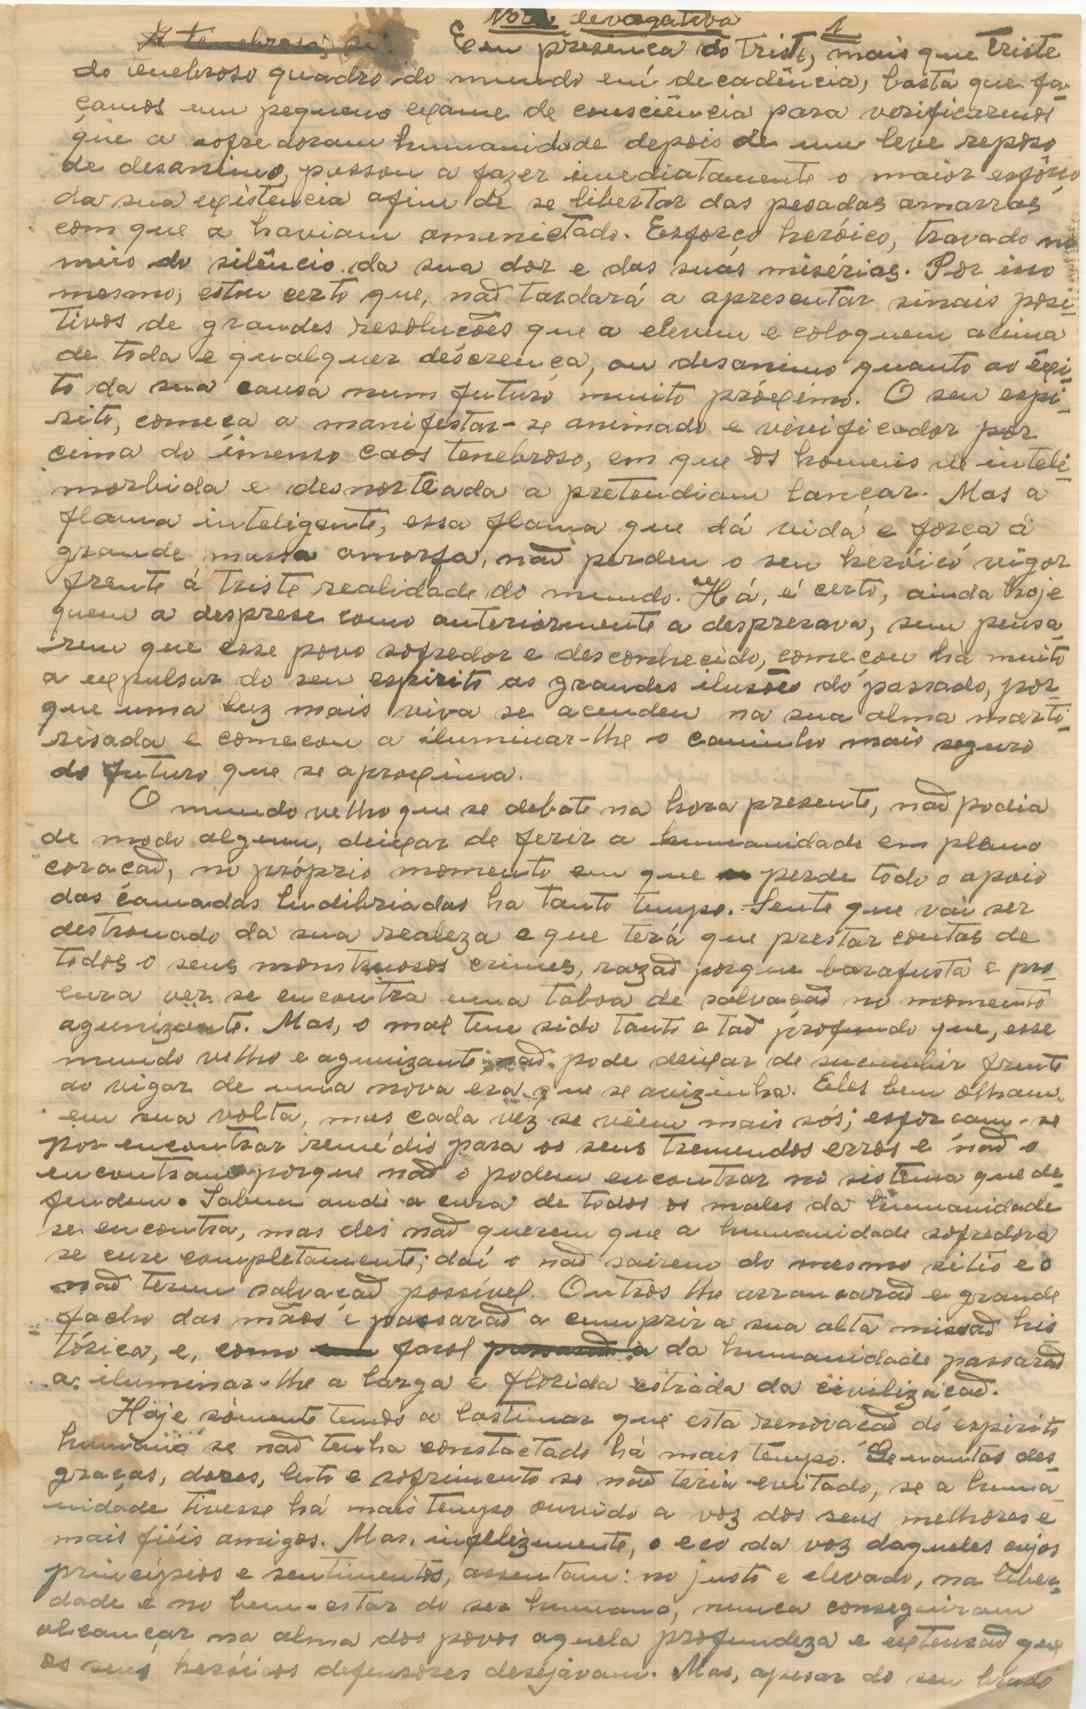 Nota evocativa
1
A tenebrosa, si
Em presença do triste, mais que triste
do tenebroso quadro do mundo em decadência, basta que fa-
çamos um pequeno exame de consciência para verificarmos
que a sofredora humanidade depois de um leve repouso
de desanimo, passou a fazer imediatamente o maior esfôrço
da sua existencia afim de se libertar das pesadas amarras
com que a haviam amanietado. Esforço heróico, travado no
meio do silêncio da sua dor e das suas misérias. Por isso
mesmo, estou certo que, não tardará a apresentar sinais posi-
tivos de grandes resoluções que a elevem e coloquem acima
de toda e qualquer descrença, ou desanimo quanto ao êxi-
to da sua causa num futuro muito próximo. O seu espi-
rito, começa a manifestar-se animado e vivificador por
cima do imenso caos tenebroso, em que os homens de inteli-
morbida e desnorteada a pretendiam lançar. Mas a
flama inteligente, essa flama que dá vida e força á
grande massa amorfa, não perdeu o seu heróico vigor
frente á triste realidade do mundo. Há, é certo, ainda hoje
quem a desprese como anteriormente a despresava, sem pensa-
rem que esse povo sofredor e desconhecido, começou há muito
a expulsar do seu espirito as grandes ilusões do passado, por-
que uma luz mais viva se acendeu na sua alma marti-
risada e começou a iluminar-lhe o caminho mais seguro
do futuro que se aproxima.
O mundo velho que se debate na hora presente, não podia
de modo algum, deixar de ferir a humanidade em pleno
coração, no próprio momento em que perde todo o apoio
das camadas ludibriadas ha tanto tempo. Sente que vai ser
destronado da sua realeza e que terá que prestar contas de
todos o seus monstruosos crimes, razão porque barafusta e pro-
cura ver se encontra uma taboa de salvação no momento
agunizante. Mas, o mal tem sido tanto e tão profundo que, esse
mundo velho e agunizante não pode deixar de sucumbir frente
ao vigor de uma nova era que se avizinha. Eles bem olham
em sua volta, mas cada vez se vêem mais sós; esforçam-se
por encontrar remédio para os seus tremendos erros e não o
encontram porque não o podem encontrar no sistema que de-
fendem. Sabem onde a cura de todos os males da humanidade
se encontra, mas eles não querem que a humanidade sofredora
se cure completamente; daí o não sairem do mesmo sitio e o
não terem salvação possível. Outros lhe arrancarão e grande
facho das mãos e passarão a cumprir a sua alta missão his
tórica, e, como farol passarão a da humanidade passarão
a iluminar-lhe a larga e florida estrada da civilização.
Hoje sómente temos a lastimar que esta renovação do espirito
humano se não tenha constactado há mais têmpo. Quantas des-
graças, dores, luto e sofrimento se não teria evitado, se a huma-
nidade tivesse há mais tempo ouvido a voz dos seus melhores e
mais fiéis amigos. Mas, infelizmente, o eco da voz daqueles cujos
princípios e sentimentos, assentam: no justo e elevado, na liber-
dade e no bem-estar do ser humano, nunca conseguiram
alcançar na alma dos povos aquela profundeza e extensão que
os seus heróicos defensores desejavam. Mas, apesar do seu brado